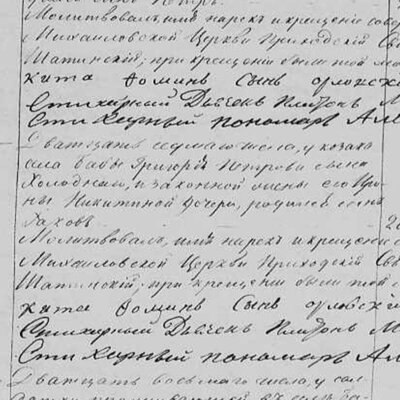 Молитвовалъ, имя нарекъ и крещеніе совер
Михаиловской Церкви Приходскій Св
Шатинскій; при крещеніи былъ той
кита Ѳоминъ Сынъ орловскі
Стихарный Дьячекъ Платонъ
Стихарный пономарь Але
Дватцать седмаго числа, у козака
села бабы Григорія Петрова сына
Холоднаго, и законной жены его Ири
ны Никитиной дочери, родился сынъ
Іаковъ
Молитвовалъ, имя нарекъ и крещеніе
Михаиловской Церкви Приходскій Св
Шатинскій, при крещеніи былъ той
кита Ѳоминъ Сынъ орловскі
Стихарный Дьячекъ Платонъ М
Стихарный пономарь Але
Дватцать восьмаго числа, у сол